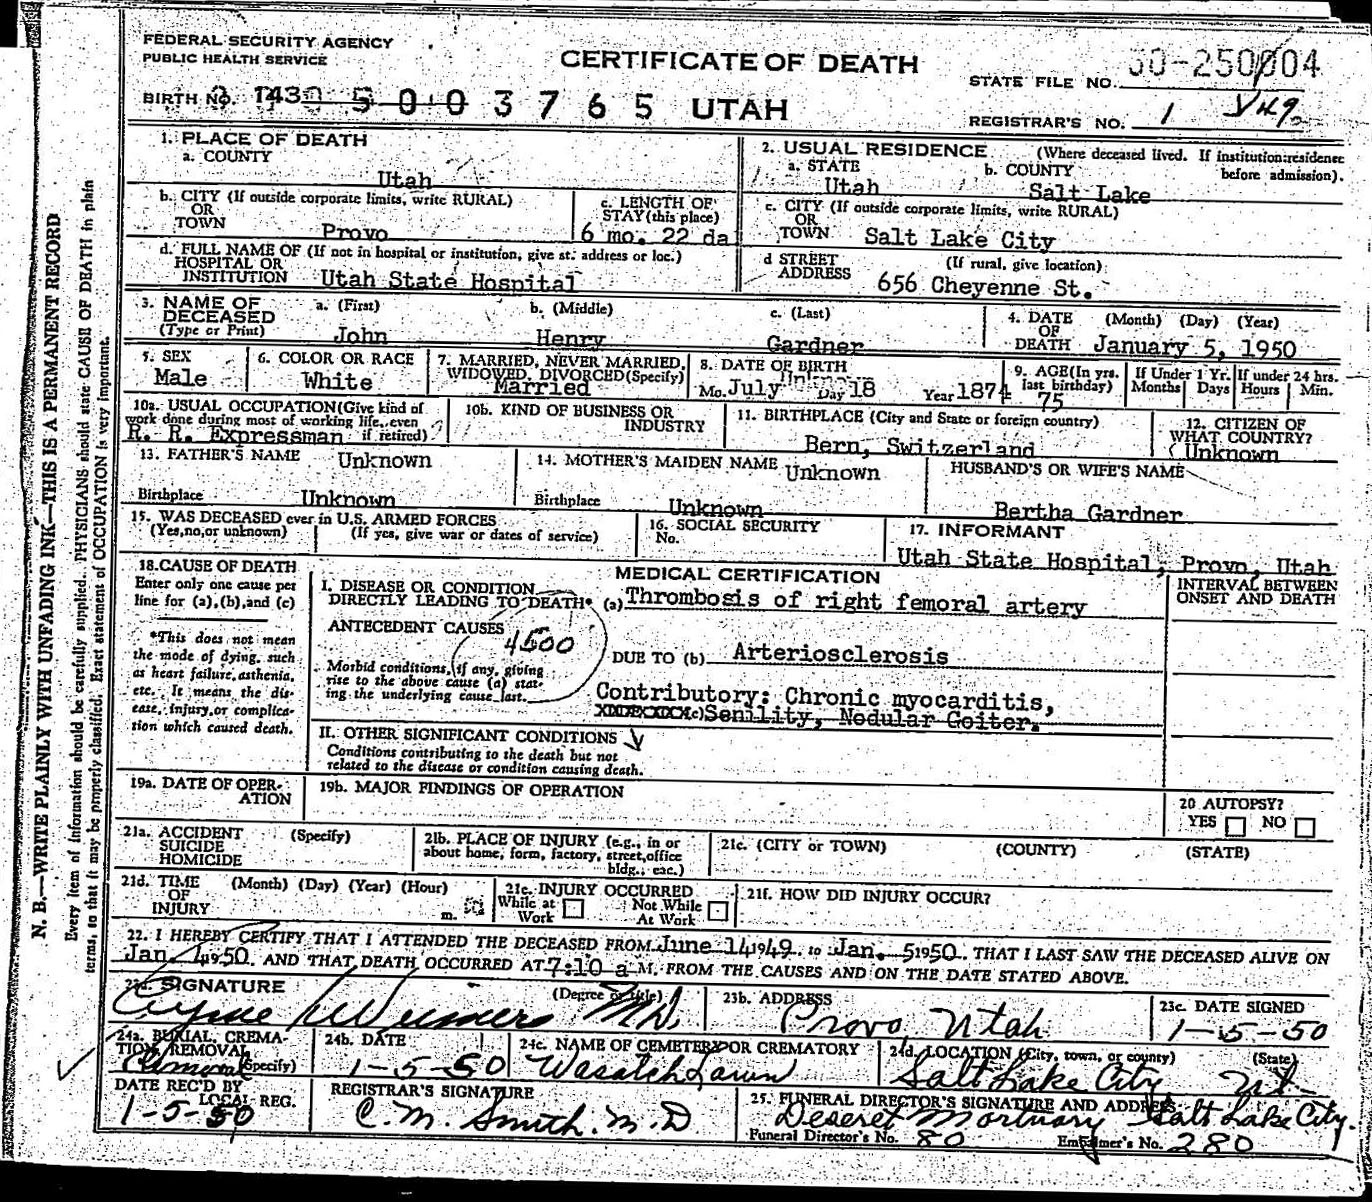 FEDERAL SECURITY AGENCY
PUBLIC HEALTH SERVICE
CERTIFICATE OF DEATH
STATE FILE NO. 50-250004
BIRTH NO. 5003765 UTAH
REGISTRAR'S NO. 1
1. PLACE OF DEATH
a. COUNTY
Utah
2. USUAL RESIDENCE (Where deceased lived. If institution:residence before admission).
a. STATE Utah b. COUNTY Salt Lake
b. CITY (If outside corporate limits, write RURAL)
OR
TOWN Provo
c. LENGTH OF
STAY (this place)
6 mo. 22 da
c. CITY (If outside corporate limits, write RURAL)
OR
TOWN Salt Lake City
d. FULL NAME OF (If not in hospital or institution, give st. address or loc.)
HOSPITAL OR
INSTITUTION Utah State Hospital
d STREET (If rural, give location)
ADDRESS 656 Cheyenne St.
3. NAME OF DECEASED (Type or Print)
a. (First) b. (Middle) c. (Last)
John Henry Gardner
4. DATE OF DEATH (Month) (Day) (Year)
January 5, 1950
5. SEX
Male
6. COLOR OR RACE
White
7. MARRIED, NEVER MARRIED,
WIDOWED, DIVORCED (Specify)
Married
8. DATE OF BIRTH
Mo. July Day 18 Year 1874
9. AGE (In yrs. last birthday)
75
If Under 1 Yr. Months Days
If under 24 hrs. Hours Min.
10a. USUAL OCCUPATION (Give kind of
work done during most of working life, even
if retired)
R. R. Expressman
10b. KIND OF BUSINESS OR
INDUSTRY
11. BIRTHPLACE (City and State or foreign country)
Bern, Switzerland
12. CITIZEN OF
WHAT COUNTRY?
Unknown
13. FATHER'S NAME Unknown
Birthplace Unknown
14. MOTHER'S MAIDEN NAME Unknown
Birthplace Unknown
HUSBAND'S OR WIFE'S NAME
Bertha Gardner
15. WAS DECEASED ever in U.S. ARMED FORCES
(Yes, no, or unknown) (If yes, give war or dates of service)
16. SOCIAL SECURITY
No.
17. INFORMANT
Utah State Hospital, Provo, Utah
18. CAUSE OF DEATH
Enter only one cause per
line for (a), (b), and (c)
*This does not mean
the mode of dying, such
as heart failure, asthenia,
etc. It means the dis-
ease, injury, or complica-
tion which caused death.
MEDICAL CERTIFICATION
INTERVAL BETWEEN
ONSET AND DEATH
I. DISEASE OR CONDITION
DIRECTLY LEADING TO DEATH* (a) Thrombosis of right femoral artery
ANTECEDENT CAUSES
4500
Morbid conditions, if any, giving
rise to the above cause (a) stat-
ing the underlying cause last.
DUE TO (b) Arteriosclerosis
Contributory: Chronic myocarditis,
(c) Senility, Nodular Goiter.
II. OTHER SIGNIFICANT CONDITIONS
Conditions contributing to the death but not
related to the disease or condition causing death.
19a. DATE OF OPER-
ATION
19b. MAJOR FINDINGS OF OPERATION
20 AUTOPSY?
YES NO
21a. ACCIDENT (Specify)
SUICIDE
HOMICIDE
21b. PLACE OF INJURY (e.g., in or
about home, form, factory, street, office
bldg., eac.)
21c. (CITY or TOWN) (COUNTY) (STATE)
21d. TIME (Month) (Day) (Year) (Hour)
OF
INJURY m.
21e. INJURY OCCURRED
While at Work Not While At Work
21f. HOW DID INJURY OCCUR?
22. I HEREBY CERTIFY THAT I ATTENDED THE DECEASED FROM June 14 1949 to Jan. 5 1950. THAT I LAST SAW THE DECEASED ALIVE ON
Jan. 4 1950. AND THAT DEATH OCCURRED AT 7:10 a M. FROM THE CAUSES AND ON THE DATE STATED ABOVE.
SIGNATURE (Degree or title)
M.D.
23b. ADDRESS
Provo, Utah
23c. DATE SIGNED
1-5-50
24a. BURIAL, CREMA-
TION, REMOVAL (Specify)
Removal
24b. DATE
1-5-50
24c. NAME OF CEMETERY OR CREMATORY
Wasatch Lawn
24d. LOCATION (City, town, or county) (State)
Salt Lake City Ut.
DATE REC'D BY
LOCAL REG.
1-5-50
REGISTRAR'S SIGNATURE
C. M. Smith. M. D
25. FUNERAL DIRECTOR'S SIGNATURE AND ADDRESS
Deseret Mortuary Salt Lake City.
Funeral Director's No. 80 Embalmer's No. 280
N. B.—WRITE PLAINLY WITH UNFADING INK—THIS IS A PERMANENT RECORD
Every item of information should be carefully supplied. PHYSICIANS should state CAUSE OF DEATH in plain
terms, so that it may be properly classified. Exact statement of OCCUPATION is very important.